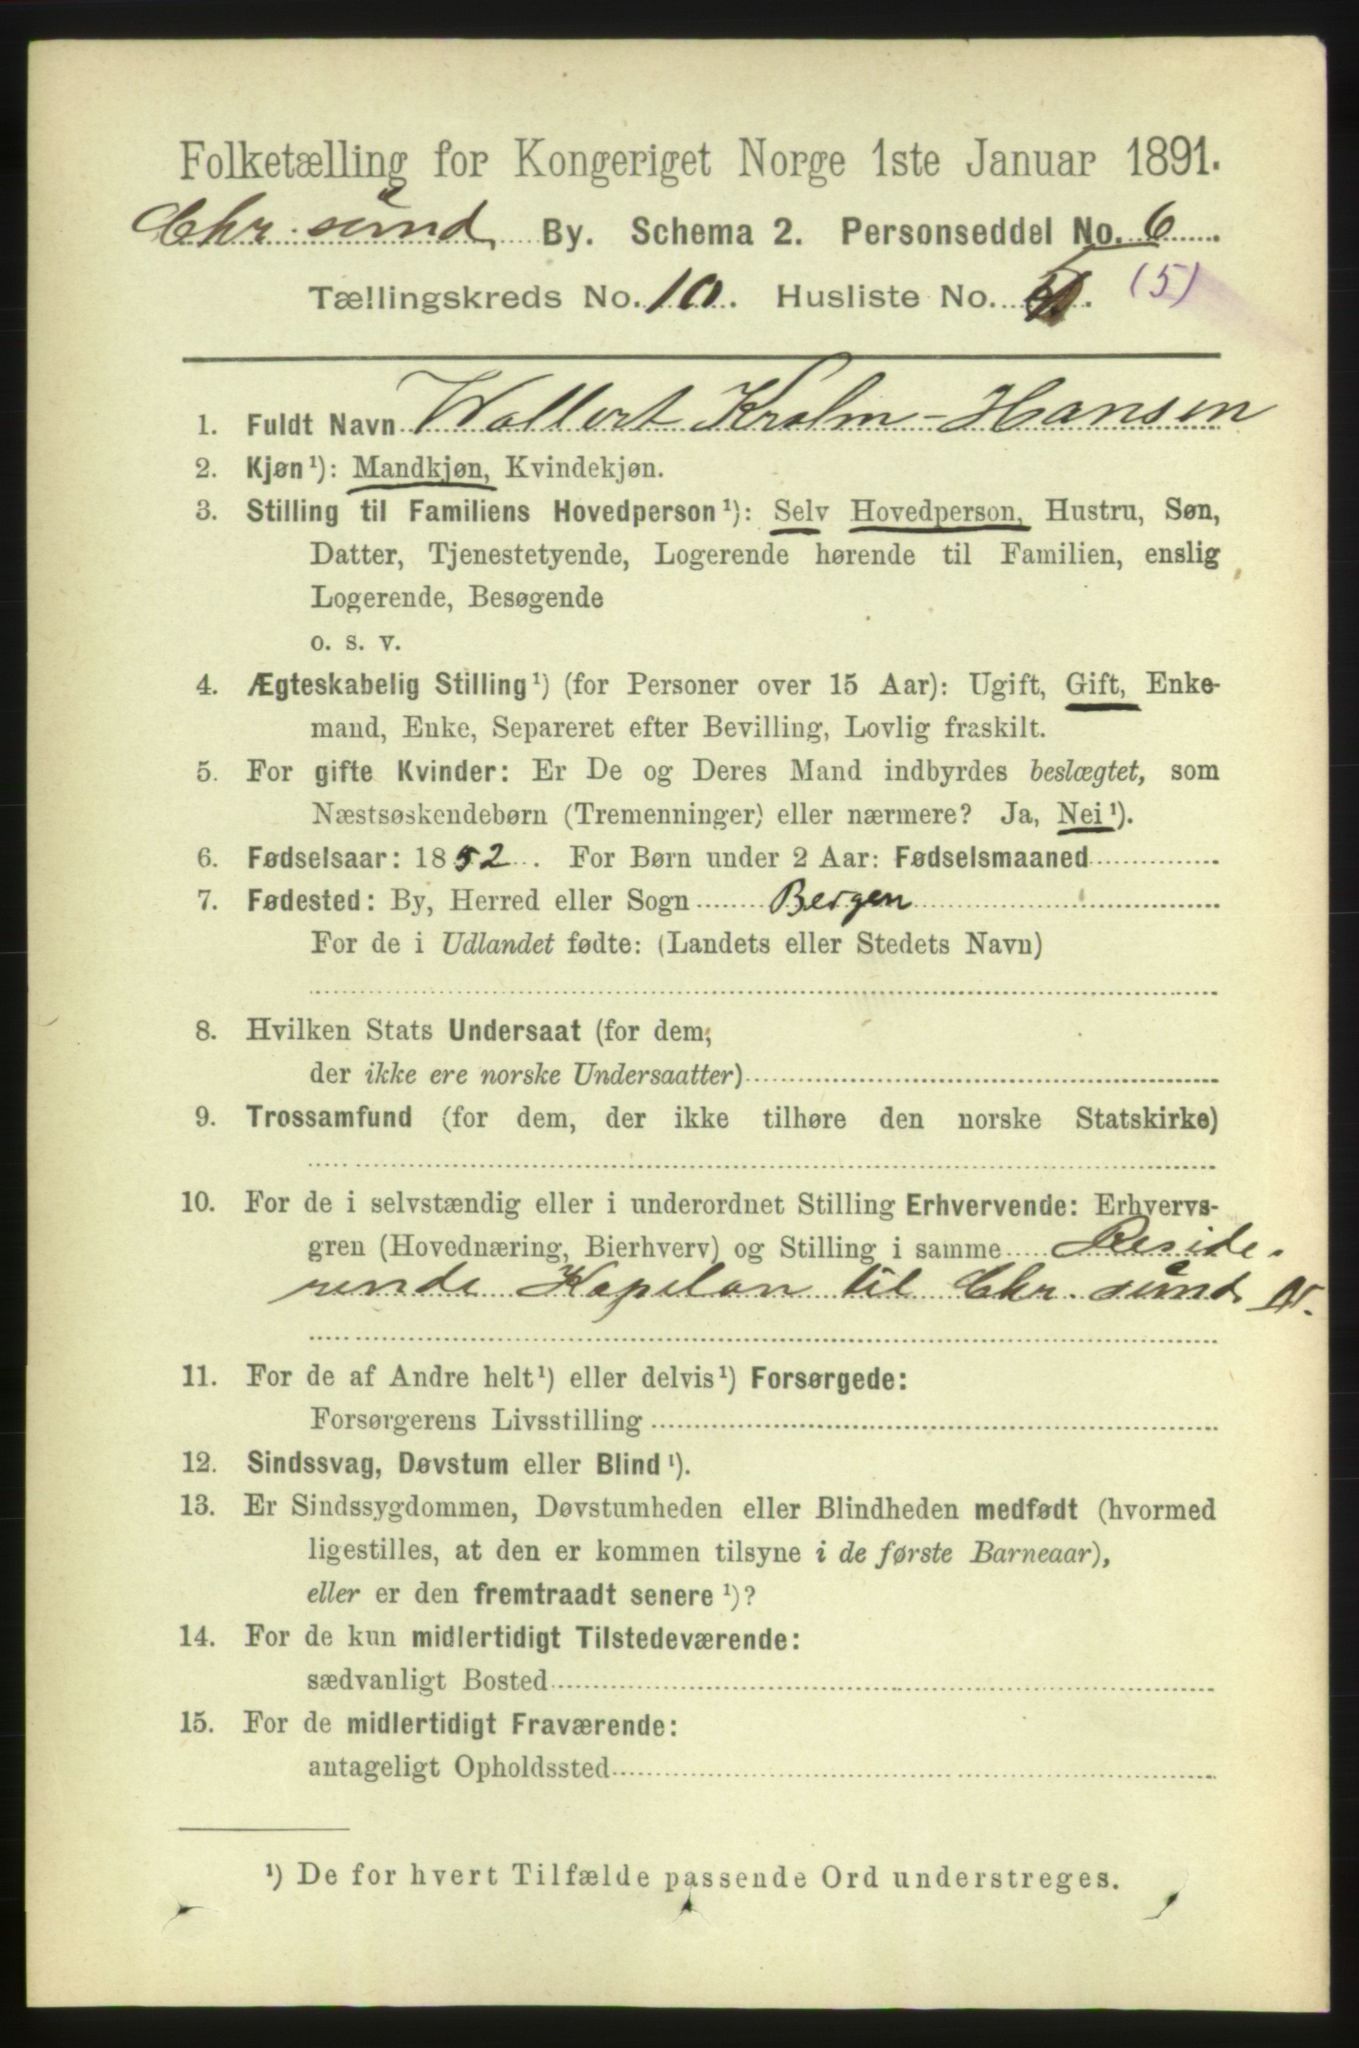 Folketælling for Kongeriget Norge 1ste Januar 1891.
Chr. sund By. Schema 2. Personseddel No. 6
Tællingskreds No. 10. Husliste No. (5)
1. Fuldt Navn Wollert Krohn-Hansen
2. Kjøn¹): Mandkjøn, Kvindekjøn.
3. Stilling til Familiens Hovedperson¹): Selv Hovedperson, Hustru, Søn,
Datter, Tjenestetyende, Logerende hørende til Familien, enslig
Logerende, Besøgende
o. s. v.
4. Ægteskabelig Stilling¹) (for Personer over 15 Aar): Ugift, Gift, Enke-
mand, Enke, Separeret efter Bevilling, Lovlig fraskilt.
5. For gifte Kvinder: Er De og Deres Mand indbyrdes beslægtet, som
Næstsøskendebørn (Tremenninger) eller nærmere? Ja, Nei¹).
6. Fødselsaar: 1852. For Børn under 2 Aar: Fødselsmaaned
7. Fødested: By, Herred eller Sogn Bergen
For de i Udlandet fødte: (Landets eller Stedets Navn)
8. Hvilken Stats Undersaat (for dem,
der ikke ere norske Undersaatter)
9. Trossamfund (for dem, der ikke tilhøre den norske Statskirke)
10. For de i selvstændig eller i underordnet Stilling Erhvervende: Erhvervs-
gren (Hovednæring, Bierhverv) og Stilling i samme Reside-
rende Kapelan til Chr. sund N.
11. For de af Andre helt¹) eller delvis¹) Forsørgede:
Forsørgerens Livsstilling
12. Sindssvag, Døvstum eller Blind¹).
13. Er Sindssygdommen, Døvstumheden eller Blindheden medfødt (hvormed
ligestilles, at den er kommen tilsyne i de første Barneaar),
eller er den fremtraadt senere¹)?
14. For de kun midlertidigt Tilstedeværende:
sædvanligt Bosted
15. For de midlertidigt Fraværende:
antageligt Opholdssted
¹) De for hvert Tilfælde passende Ord understreges.